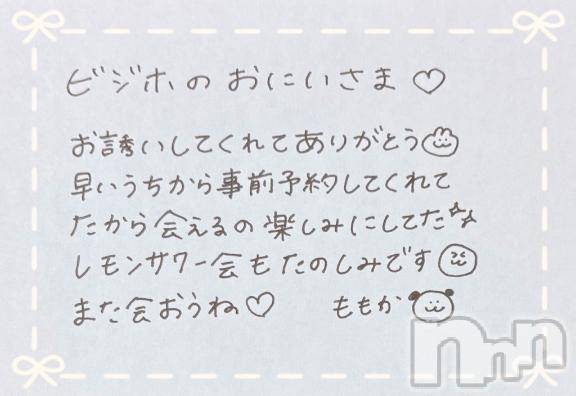 ビジホの おにいさま♡
お誘いしてくれてありがとう
早いうちから事前予約してくれて
たから会えるの楽しみにしてた
レモンサワー会もたのしみです
また会おうね♡ ももか
nnn